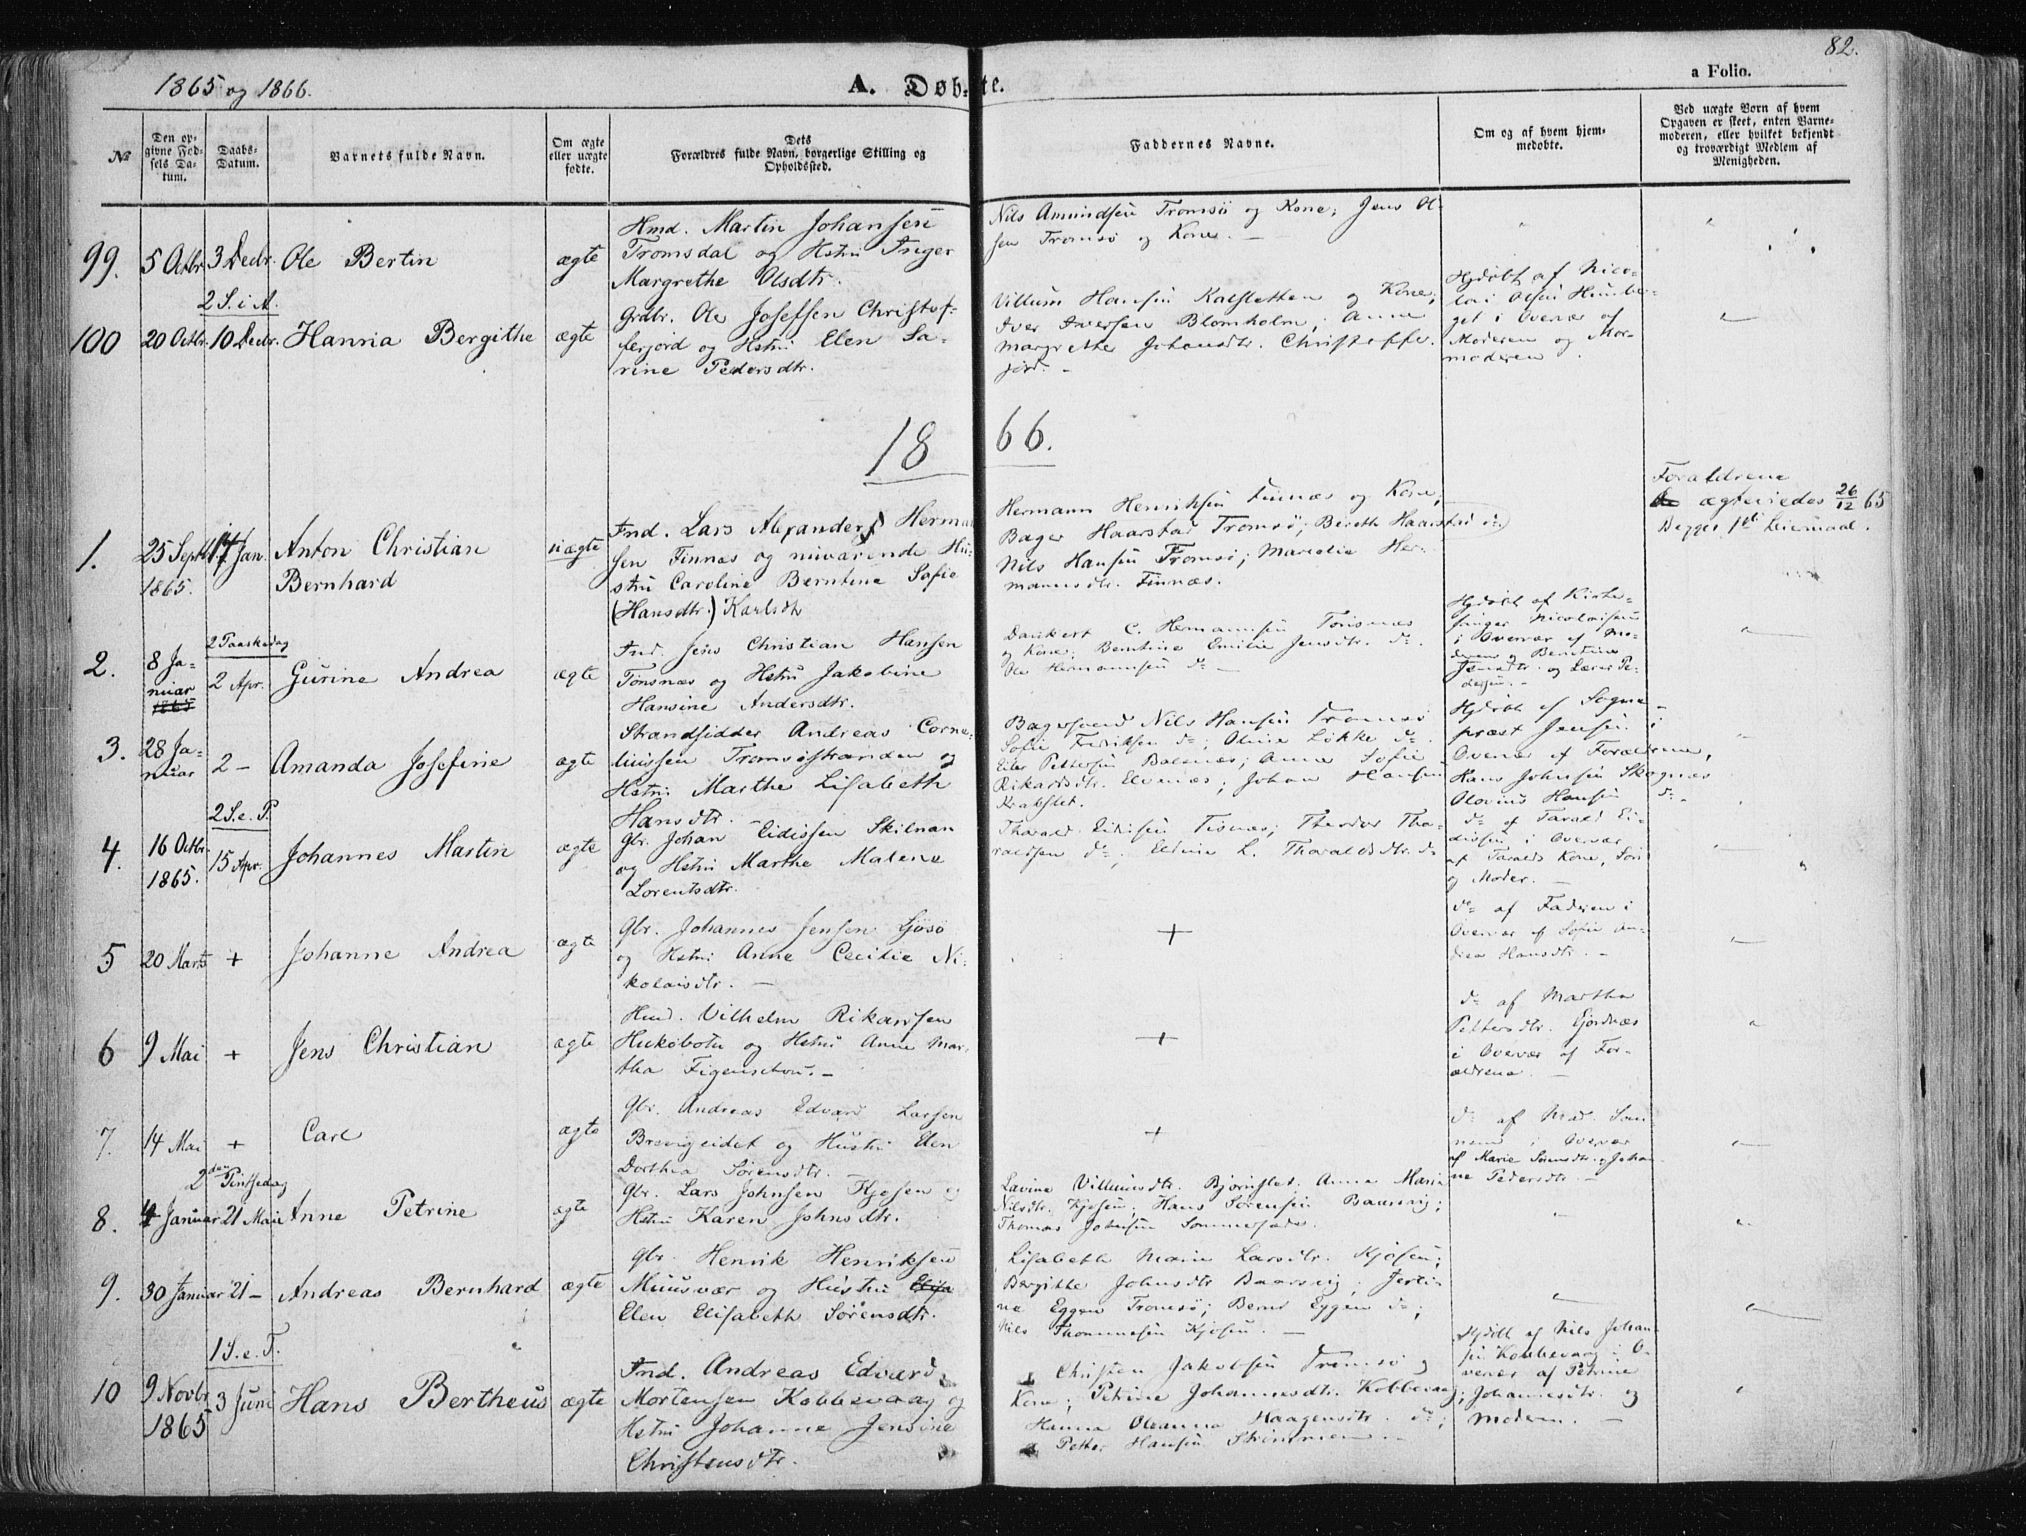 82.
1865 og 1866.
A. Døbte.
a Folio.
No
Den opgivne Fødsels Datum.
Daabs-Datum.
Barnets fulde Navn.
Om ægte eller uægte fødte.
Dets Forældres fulde Navn, borgerlige Stilling og Opholdssted.
Faddernes Navne.
Om og af hvem hjemmedøbte.
Ved uægte Børn af hvem Opgaven er skeet, enten Barnemoderen, eller hvilket bekjendt og troværdigt Medlem af Menigheden.
99.
5 Octbr.
3 Decbr.
Ole Bertin
ægte
Hmd. Martin Johansen
Tromsdal og Hstru Inger
Margrethe Olsdtr.
Nils Amundsen Tromsö og Kone; Jens Ol-
sen Tromsö og Kone. —
2 S. i A.
100
20 Octbr.
10 Decbr.
Hanna Bergithe
ægte
Grdbr. Ole Josefsen Christof-
ferjord og Hstru Elen Sa-
rine Pedersdtr.
Villum Hansen Kalsletten og Kone;
Iver Iversen Blomholm; Anne
Margrethe Johansdtr. Christoffer-
jord. -
Hjdöbt af Nico-
lai Olsen
i Overvær af
Moderen og Mor-
moderen.
1866.
1.
25 Septbr.
1865.
17 Jan.
Anton Christian
Bernhard
uægte
Ind. Lars Alexander Herman-
sen Finnæs og nuværende Hu-
stru Caroline Berntine Sofie
(Hansdtr.) Karlsdtr
Hermann Henriksen Finnæs og Kone;
Bager Haarstad Tromsö; Bereth Haarstad
Nils Hansen Tromsö; Maredie Her-
mannsdtr. Finnæs.
Forældrene
ægteviedes 26/12 65
Begges 1ste Leiermaal.
2 Paaskedag
2.
8 Ja-
nuar
1865
2 Apr.
Gurine Andrea
ægte
Ind. Jens Christian Hansen
Tönsnæs og Hstru Jakobine
Hansine Andersdtr.
Dankert C. Hermannsen Tönsnæs
og Kone; Berntine Emilie Jensdtr. do.
Ole Hermannsen do —
Hjdöbt af Kirke-
sanger Nicolaisen
i Overvær af Mo-
deren og Berntine
Jensdtr. og Lærer Pe-
dersen. -
3.
28 Ja-
nuar
2 —
Amanda Josefine
ægte
Strandsidder Andreas Corne-
liussen Tromsöstranden og
Hstru Marthe Lisabeth
Hansdtr. —
Bagersvend Nils Hansen Tromsö
Sofie Fredriksen do; Oline Lökke do.
Eiler Pettersen Balsnæs; Anne Sofie
Rikardsdtr. Elvenæs; Johan Hansen
Krabslet.
Hjdöbt af Sogne-
præst Jensen i
Overvær af Forældrene,
Hans Johnsen Skognæs
Olovius Hansen do.
2 S. e. P.
4.
16 Octbr.
1865.
15 Apr.
Johannes Martin
ægte
Gbr. Johan Eidissen Skilnan
og Hstru Marthe Malene
Lorentsdtr.
Tharald Eidissen Tisnæs; Theodor Tha-
raldsen do; Eldine L. Tharaldsdtr. do
do af Tarald Ei-
dissen i Overvær
af Taralds Kone, Sön
og Moder. —
5
20 Marts
+
Johanne Andrea
ægte
Gbr. Johannes Jensen Gjösö
og Hstru Anne Cecilie Ni-
kolaisdtr. —
+
do af Faderen i
Overvær af Sofie An-
drea Hansdtr. -
6
9 Mai
+
Jens Christian
ægte
Hmd. Vilhelm Rikardsen
og Hstru Anne Mar-
tha Figenschou. -
+
do af Martha
Pettersdtr. Gjordnæs
i Overvær af For-
ældrene. —
7.
14 Mai
+
Carl
ægte
Gbr. Andreas Edvard Larsen
Brevigeidet og Hustru Elen
Dorthea Sörensdtr.
+
do af Mad.
i Overvær
af Marie Sörensdtr. og Johan-
ne Pedersdtr. —
2den Pintsedag
8.
4 Januar
21 Mai
Anne Petrine
ægte
Gbr. Lars Johnsen Kjosen og
Hstru Karen Johnsdtr.
Lavina Villumsdtr. Björnslet. Anna Maria
Nilsdtr. Kjosen; Hans Sörensen Baarsvig;
Thomas Johnsen Sommersæde.
9.
30 Januar
21 —
Andreas Bernhard
ægte
Gbr. Henrik Henriksen
Muusvær og Hustru Elisa
Elen Elisabeth Sörensdtr.
Lisabeth Marie Larsdtr. Kjosen;
Bergitte Johnsdtr Baarsvig; Jerti-
ne Eggen Tromsö; Bernt Eggen do;
Nils Thommesen Kjosen. —
1 S. e. T.
10
9 Novbr.
1865
3 Juni
Hans Bertheus
ægte
Ind. Andreas Edvard
Mortensen Kobbevaag og
Hstru Johanne Jensine
Christensdtr.
Christen Jakobsen Tromsö og
Kone; Petrine Johannesdtr. Kobbevaag;
Hanna Oleanna Haagensdtr. do;
Petter Hansen Strömmen. —
Hjdöbt af Nils Johan-
sen Kobbevaag i O-
vervær af Petrine
Johannesdtr. og
Moderen. —